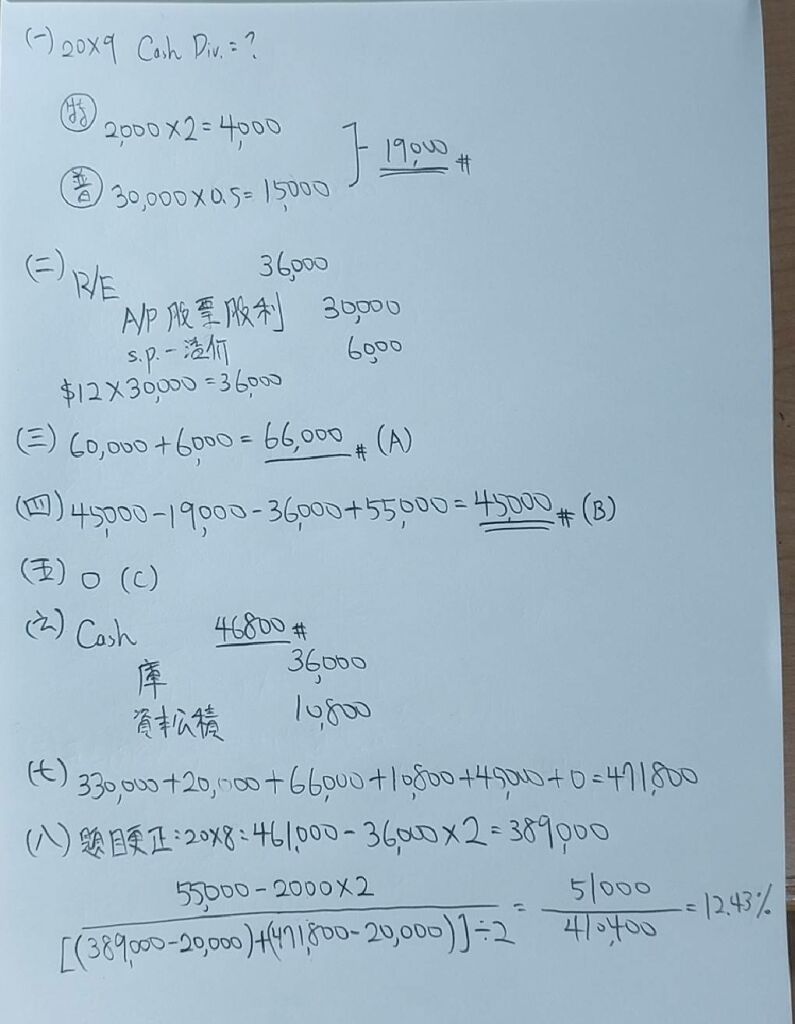 (一) 20X9 Cash Div. = ?
特 2,000 X 2 = 4,000
19,000 #
普 30,000 X 0.5 = 15,000
(二) R/E 36,000
A/P 股票股利 30,000
s.p. - 溢价 6,000
$12 X 30,000 = 36,000
(三) 60,000 + 6,000 = 66,000 # (A)
(四) 45,000 - 19,000 - 36,000 + 55,000 = 45,000 # (B)
(五) 0 (C)
(六) Cash 46800 #
庫 36,000
資本公積 10,800
(七) 330,000 + 20,000 + 66,000 + 10,800 + 45,000 + 0 = 471,800
(八) 題目更正: 20X8: 461,000 - 36,000 X 2 = 389,000
55,000 - 2000 X 2 / [(389,000 - 20,000) + (471,800 - 20,000)] ÷ 2 = 51000 / 410,400 = 12.43%